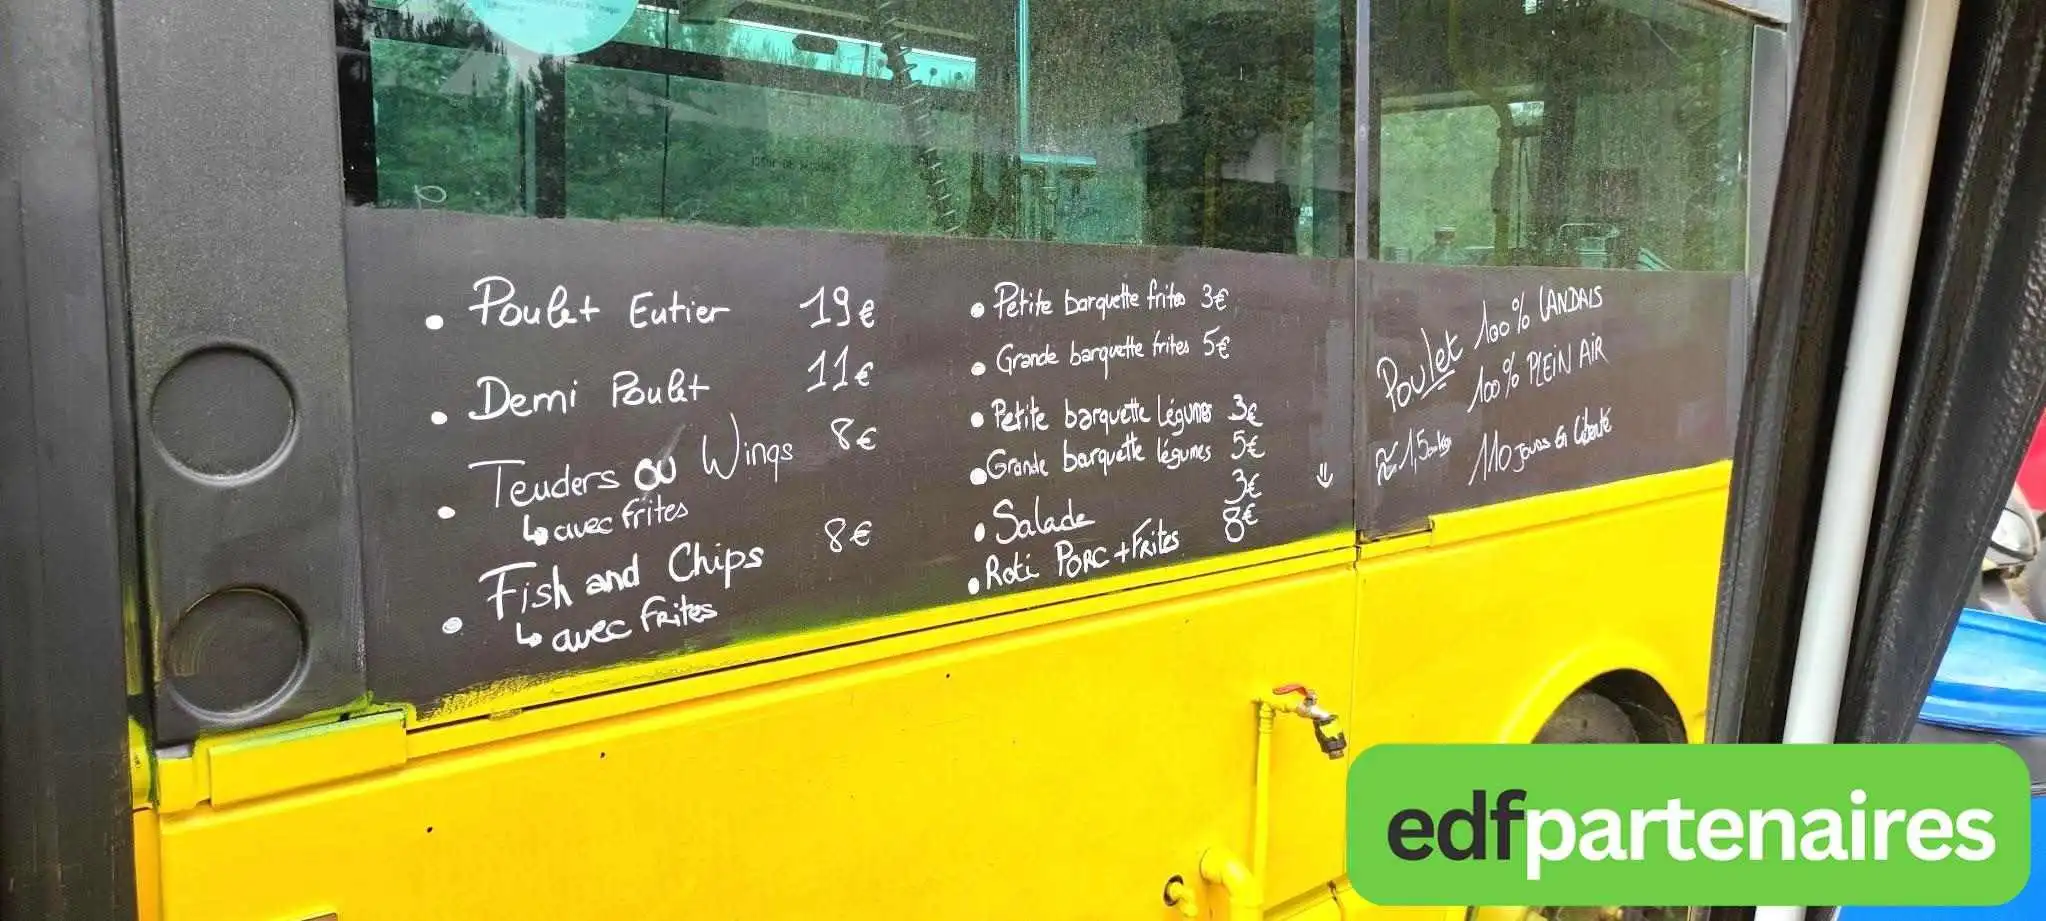 • Poulet Entier 19€
• Demi Poulet 11€
• Tenders ou Wings 8€
↳ avec frites
• Fish and Chips 8€
↳ avec frites
• Petite barquette frites 3€
• Grande barquette frites 5€
• Petite barquette légumes 3€
• Grande barquette légumes 5€
• Salade 3€
• Roti PORC + FRites 8€
Poulet 100% LANDAIS
100% PLEIN AIR
110 jours En liberté
edfpartenaires